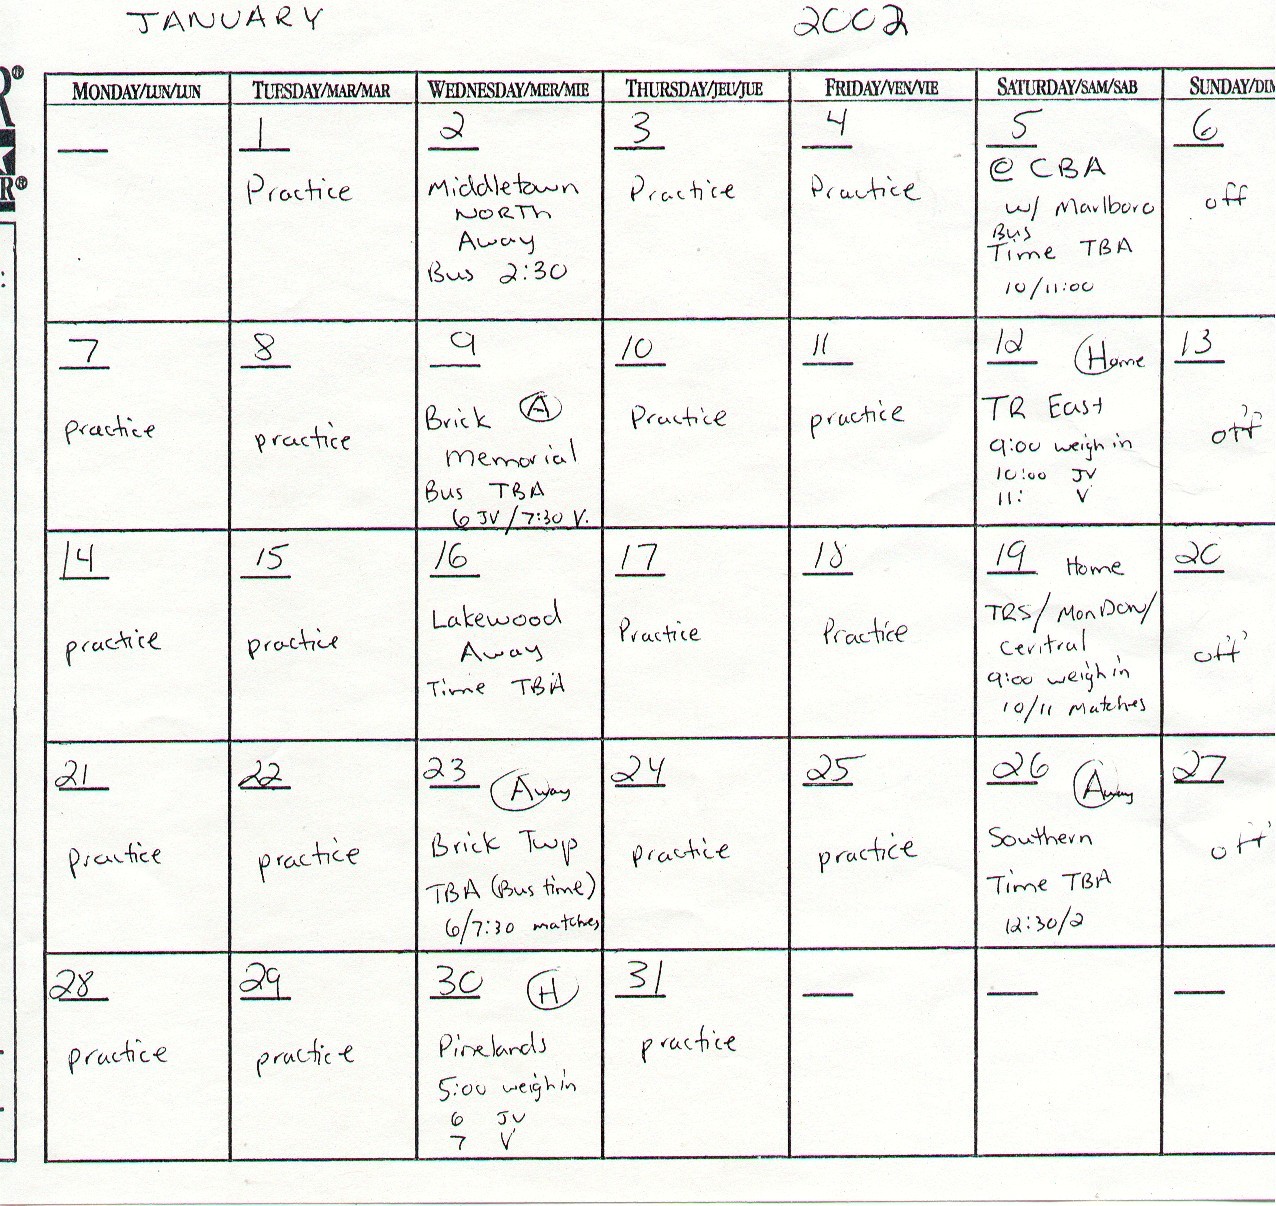 JANUARY 2002
MONDAY/LUN/LUN TUESDAY/MAR/MAR WEDNESDAY/MER/MIE THURSDAY/JEU/JUE FRIDAY/VEN/VIE SATURDAY/SAM/SAB SUNDAY/DIM
1
Practice
2
Middletown
NORTH
Away
Bus 2:30
3
Practice
4
Practice
5
@ CBA
w/ Marlboro
Bus
Time TBA
10/11:00
6
off
7
practice
8
practice
9
Brick A
Memorial
Bus TBA
6 JV/7:30 V.
10
Practice
11
practice
12 Home
TR East
9:00 weigh in
10:00 JV
11: V
13
off
14
practice
15
practice
16
Lakewood
Away
Time TBA
17
Practice
18
Practice
19 Home
TRS/Mon Don/
Central
9:00 weigh in
10/11 Matches
20
off
21
Practice
22
practice
23 Away
Brick Twp
TBA (Bus time)
6/7:30 matches
24
practice
25
practice
26 Away
Southern
Time TBA
12:30/2
27
off
28
practice
29
practice
30 H
Pinelands
5:00 weigh in
6 JV
7 V
31
practice